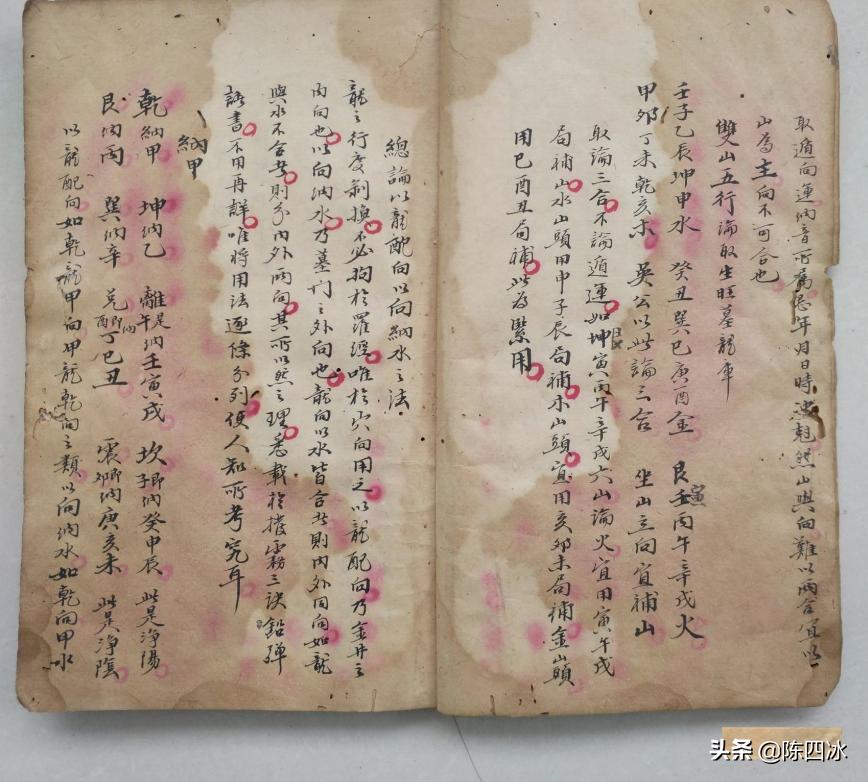 取遁向運納音所屬忌年月日時沖尅然山與向難以兩合宜以
山為主向不可合也
雙山五行論取生旺墓龍庫
壬子乙辰坤申水 癸丑巽巳庚酉金 艮寅壬丙午辛戌火
甲卯丁未乾亥木 吳公以此論三合 坐山立向宜補山
取論三合不論遁運如坤艮寅丙午辛戌六山論火宜用寅午戌
局補山水山頭用申子辰局補木山頭宜用亥卯未局補金山頭
用巳酉丑局補此為緊用
總論以龍配向以向納水之法
龍之行度剝換不必拘於羅經唯於穴向用之以龍配向乃金井之
內向也以向納水乃墓門之外向也龍向以水皆合者則內外同向如龍
與水不合者則分內外兩向其所以然之理悉載於撥霧三訣鉛彈
諸書不用再詳唯將用法逐條分列使人知所考究耳
納甲
乾納甲 坤納乙 離是午納壬寅戌 坎即子納癸申辰 此是净陽
艮納丙 巽納辛 兌即酉納丁巳丑 震卯納庚亥未 此是净陰
以龍配向如乾龍甲向甲龍乾向之類以向納水如乾向甲水
头条 @陈四冰